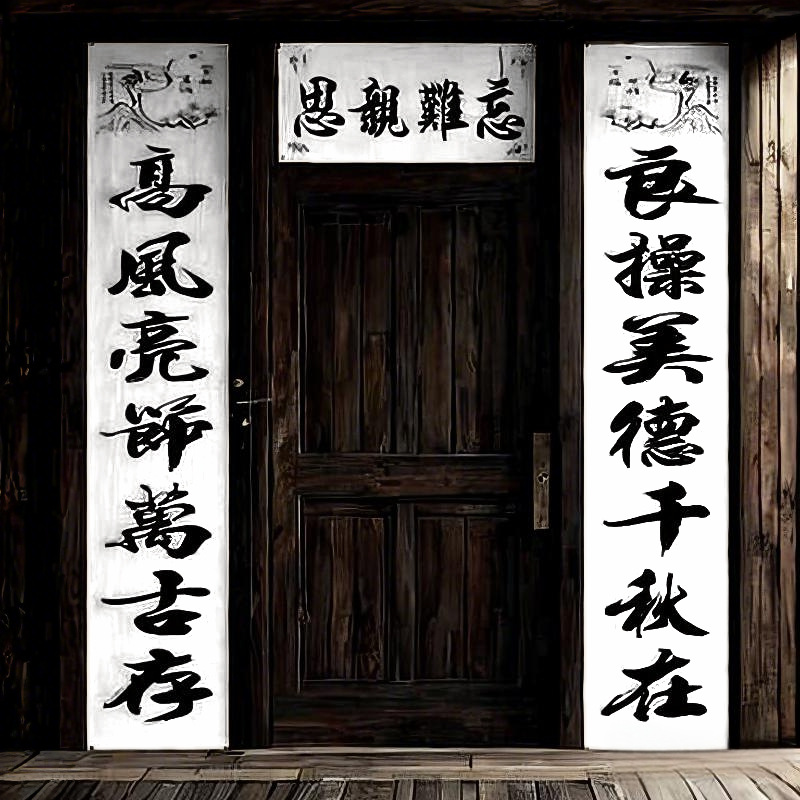 思親難忘
良操美德千秋在
高風亮節萬古存